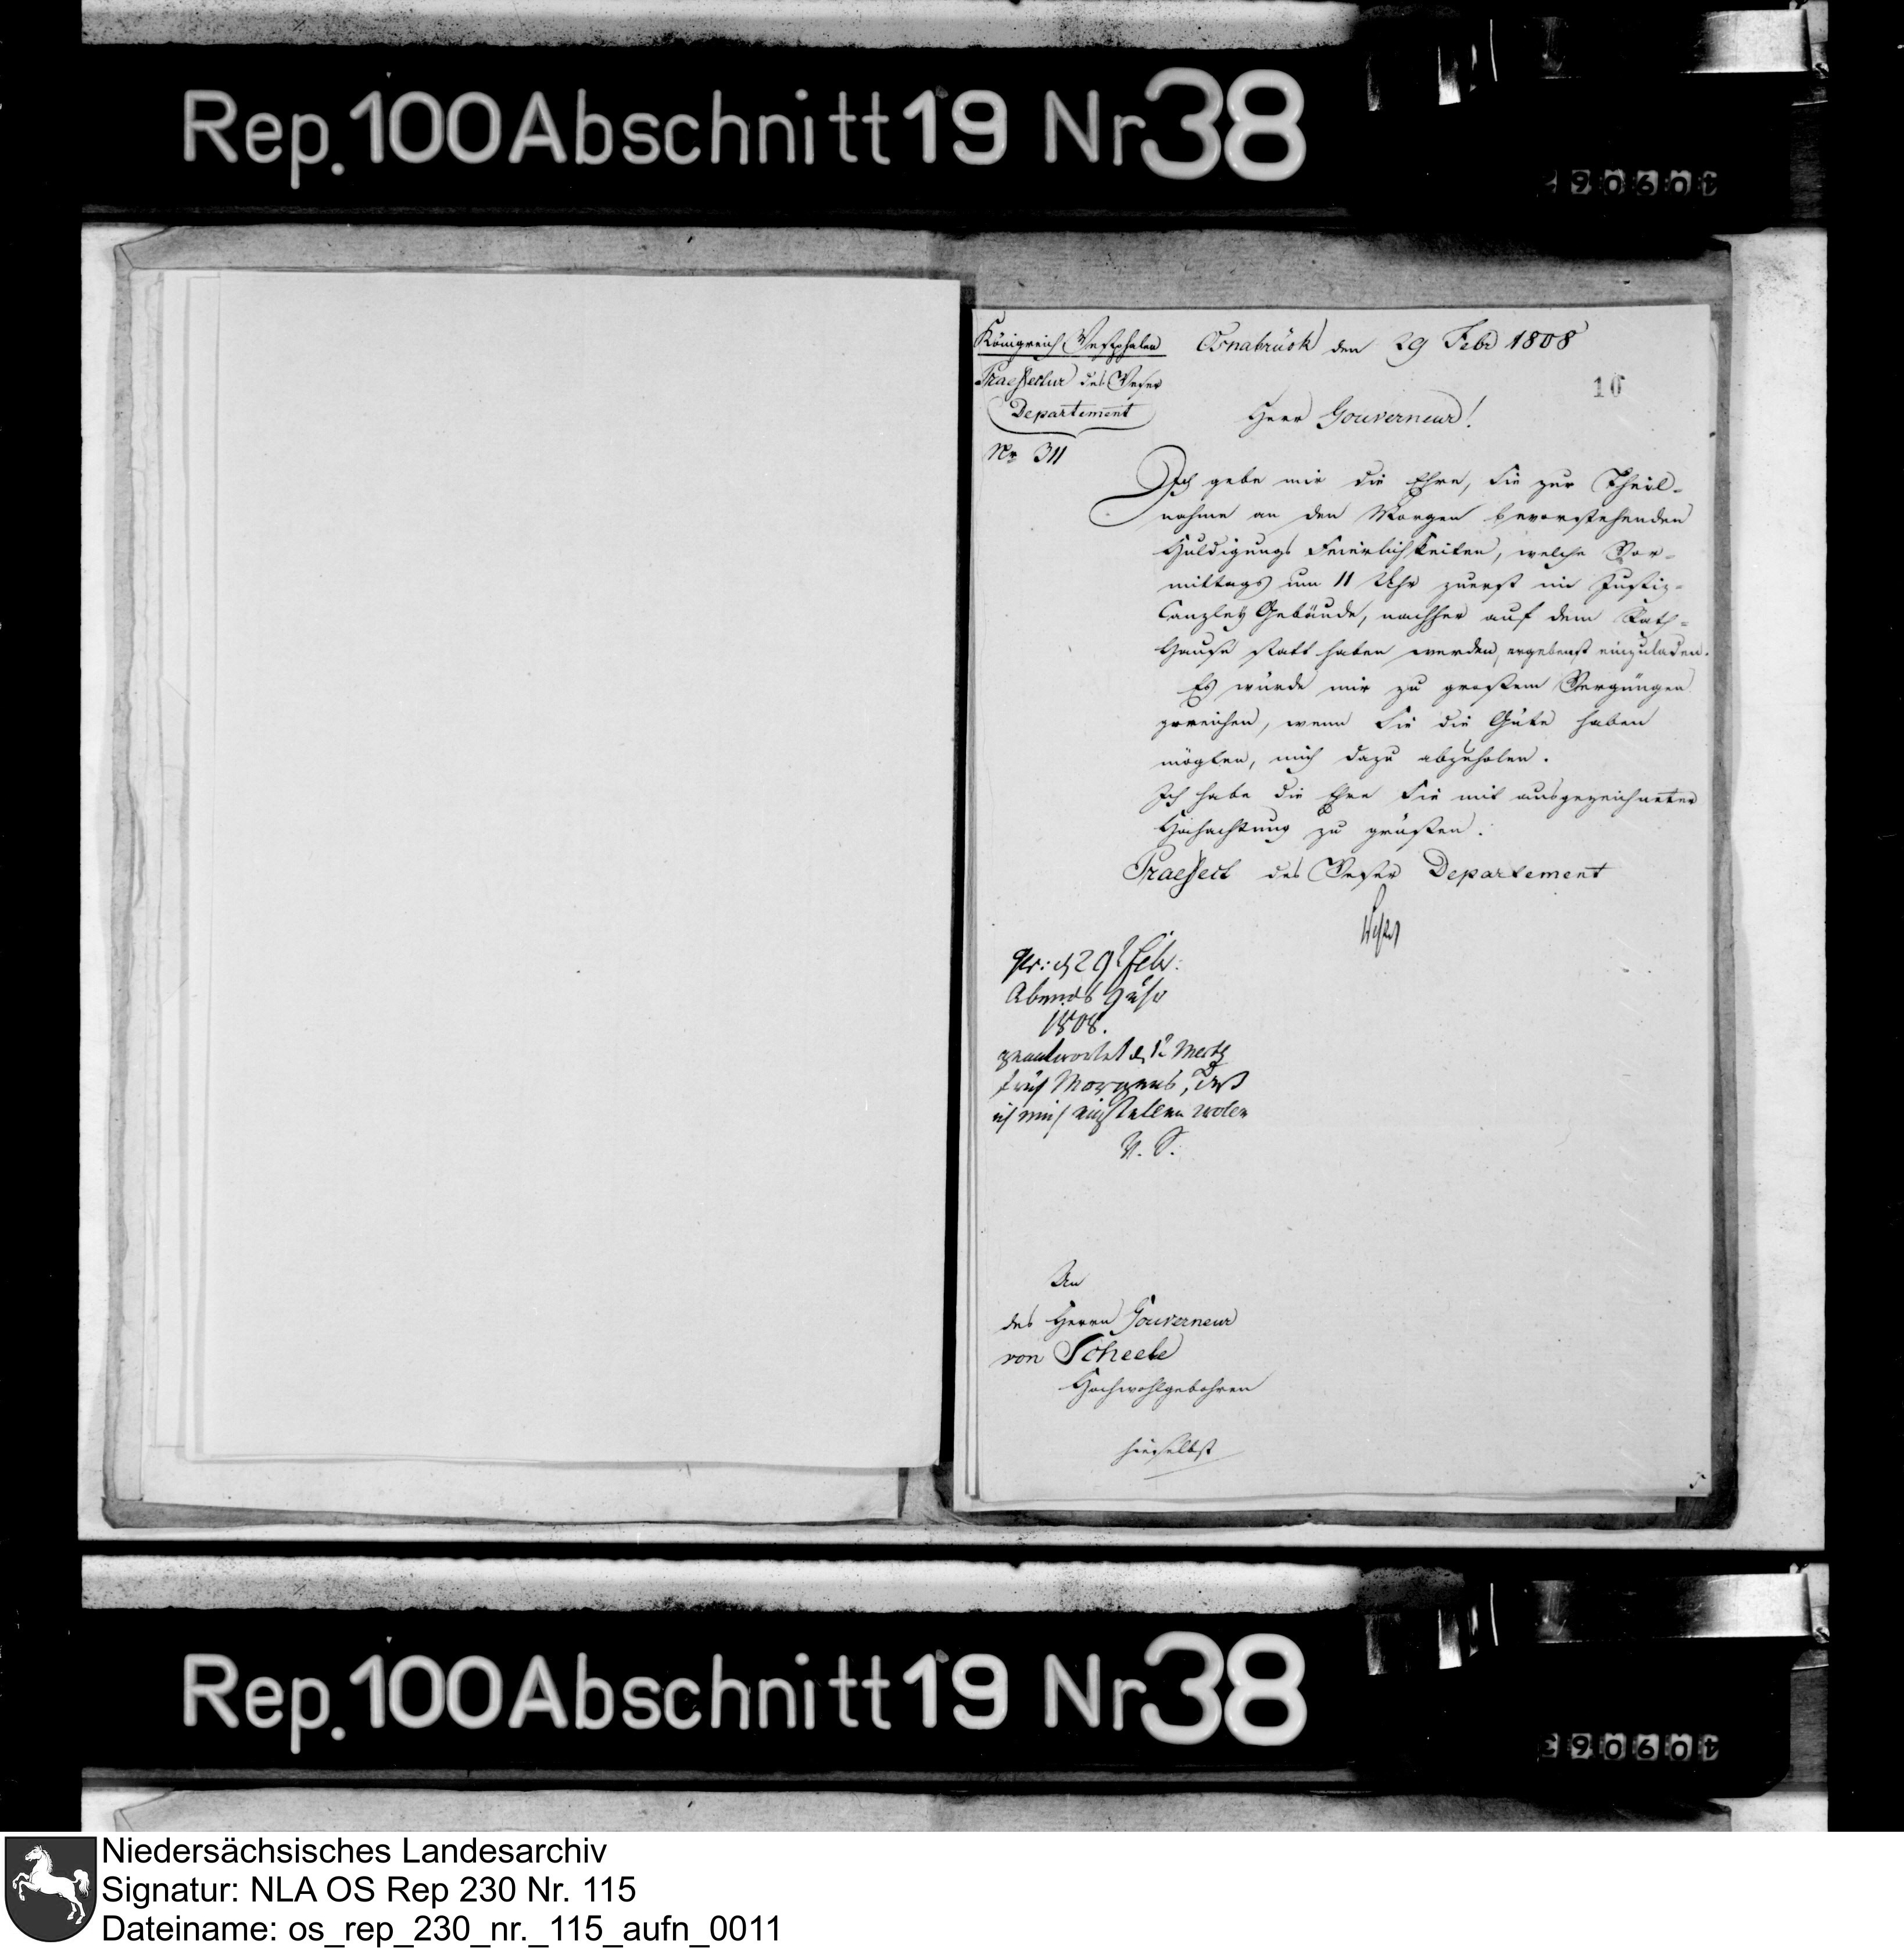 Rep. 100 Abschnitt 19 Nr 38
Königreich Westphalen
Praefectur des Weser
Departement
Nr 311
Osnabrück den 29 Febr 1808
10
Herr Gouverneur!
Ich gebe mir die Ehre, Sie zur Theil-
nahme an den Morgen bevorstehenden
Huldigungs Feierlichkeiten, welche Vor-
mittags um 11 Uhr zuerst im Justiz-
Canzley Gebäude, nachher auf dem Rath-
Hause statt haben werden, ergebenst einzuladen.
Es würde mir zu großem Vergnügen
gereichen, wenn Sie die Güte haben
mögten, mich dazu abzuholen.
Ich habe die Ehre Sie mit ausgezeichneter
Hochachtung zu grüßen.
Praefect des Weser Departement
pr: d 29t Febr:
Abends 9 Uhr
1808.
geantwortet d 1t Merz
früh Morgens, daß
ich mich einstellen wolle
V. S.
An
des Herrn Gouverneur
von Scheele
Hochwohlgebohren
hieselbst
Rep. 100 Abschnitt 19 Nr 38
Niedersächsisches Landesarchiv
Signatur: NLA OS Rep 230 Nr. 115
Dateiname: os_rep_230_nr._115_aufn_0011